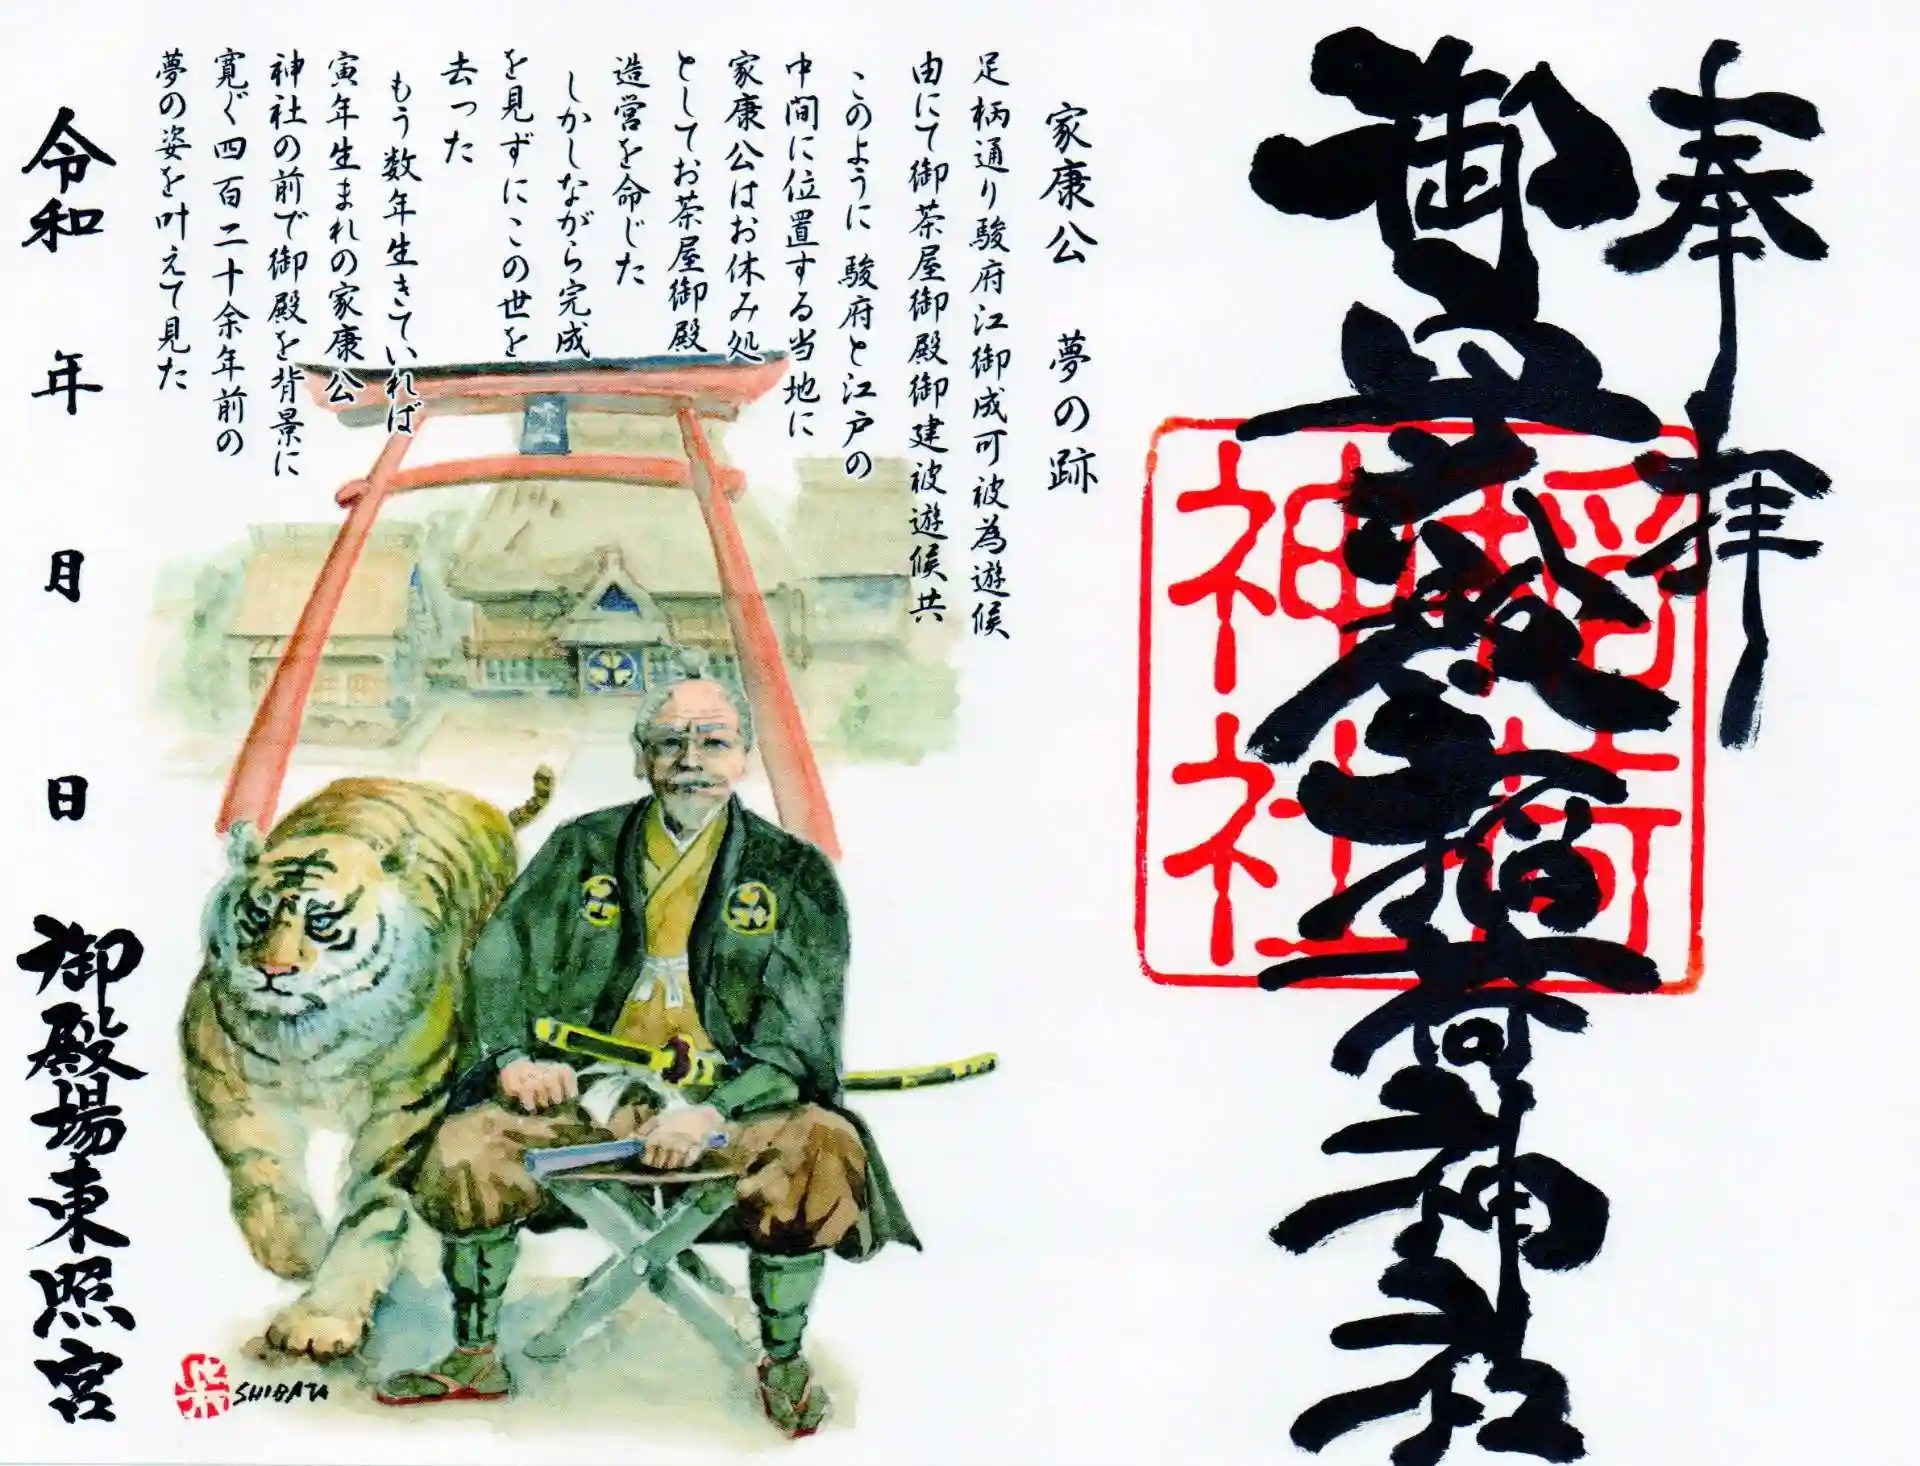 奉拝
御厨御殿稲荷神社
稲荷
神社
家康公 夢の跡
足柄通り駿府江御成可被為遊候
由にて御茶屋御殿御建被遊候共
このように 駿府と江戸の
中間に位置する当地に
家康公はお休み処
としてお茶屋御殿
造営を命じた
しかしながら完成
を見ずにこの世を
去った
もう数年生きていれば
寅年生まれの家康公
神社の前で御殿を背景に
寛ぐ四百二十余年前の
夢の姿を叶えて見た
令和 年 月 日
御殿場東照宮
SHIBATA